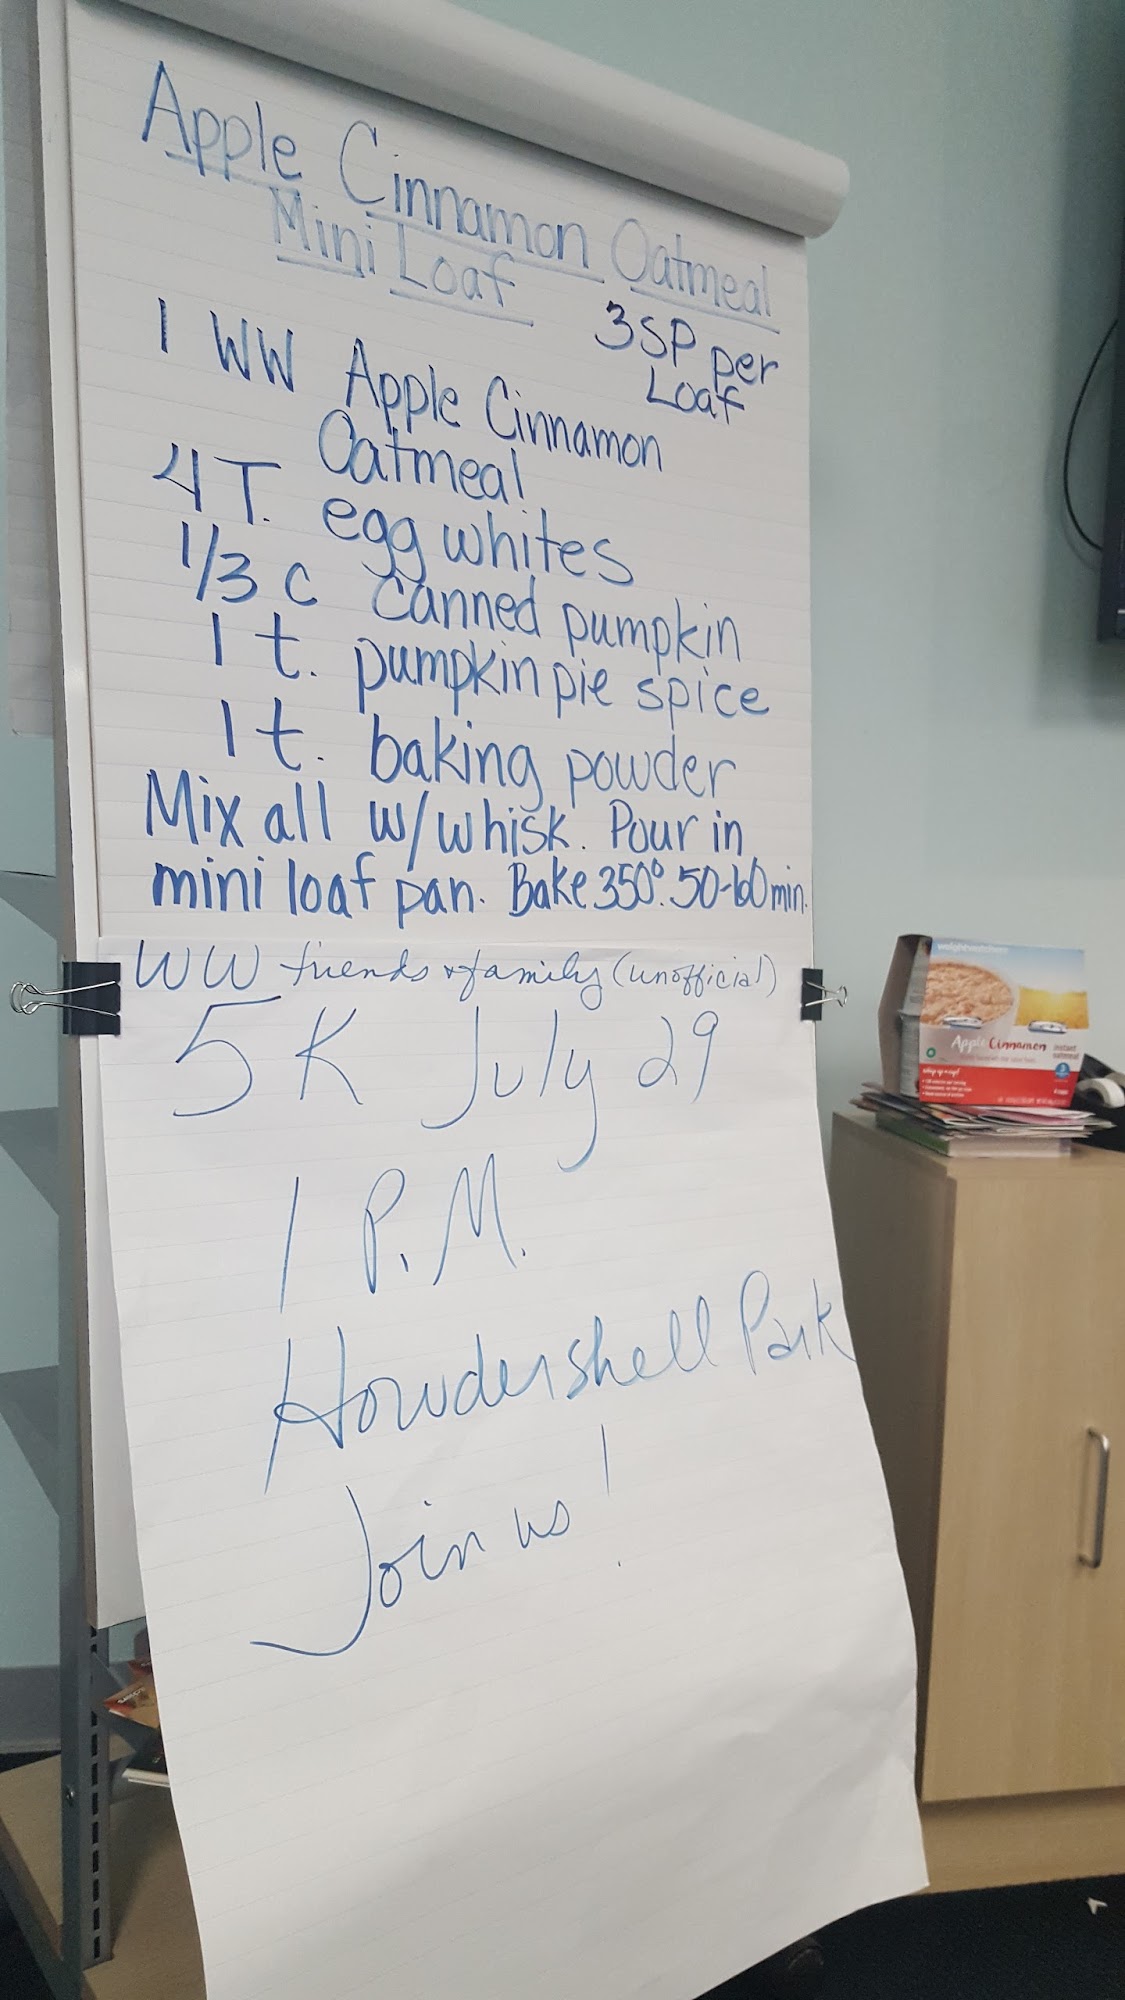 Apple Cinnamon Oatmeal
Mini Loaf
3 SP per
Loaf
1 WW Apple Cinnamon
Oatmeal
4 T. egg whites
1/3 c canned pumpkin
1 t. pumpkin pie spice
1 t. baking powder
Mix all w/whisk. Pour in
mini loaf pan. Bake 350°. 50-60 min.
WW friends & family (unofficial)
5K July 29
1 P.M.
Howdershell Park
Join us!
weightwatchers
Apple Cinnamon instant
oatmeal